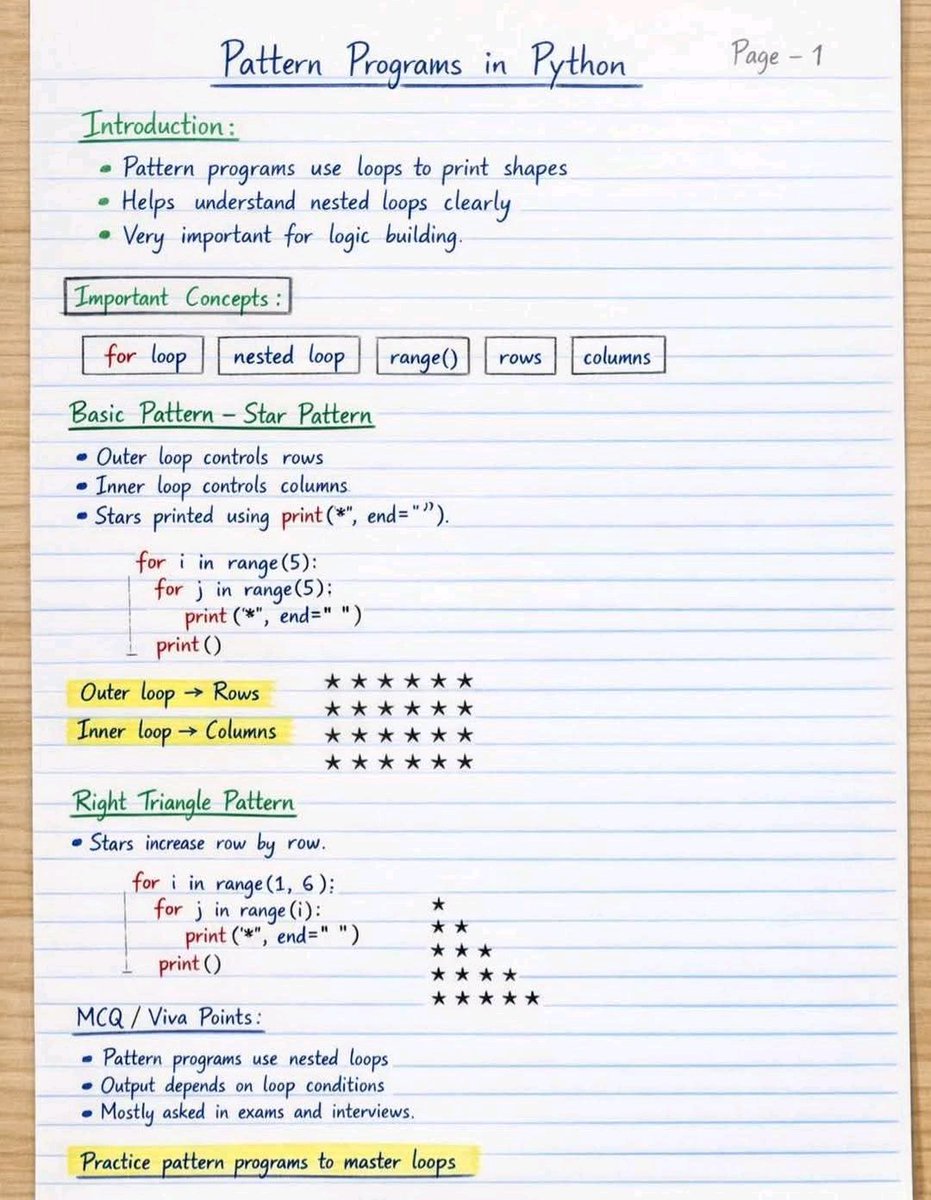 Pattern Programs in Python
Page - 1
Introduction:
• Pattern programs use loops to print shapes
• Helps understand nested loops clearly
• Very important for logic building.
Important Concepts:
for loop nested loop range() rows columns
Basic Pattern – Star Pattern
• Outer loop controls rows
• Inner loop controls columns
• Stars printed using print(*", end="").
for i in range(5):
for j in range(5):
print ("*", end=" ")
print()
Outer loop → Rows
Inner loop → Columns
★ ★ ★ ★ ★ ★
★ ★ ★ ★ ★ ★
★ ★ ★ ★ ★ ★
★ ★ ★ ★ ★ ★
Right Triangle Pattern
• Stars increase row by row.
for i in range(1, 6):
for j in range(i):
print ("*", end=" ")
print()
★
★ ★
★ ★ ★
★ ★ ★ ★
★ ★ ★ ★ ★
MCQ / Viva Points:
• Pattern programs use nested loops
• Output depends on loop conditions
• Mostly asked in exams and interviews.
Practice pattern programs to master loops